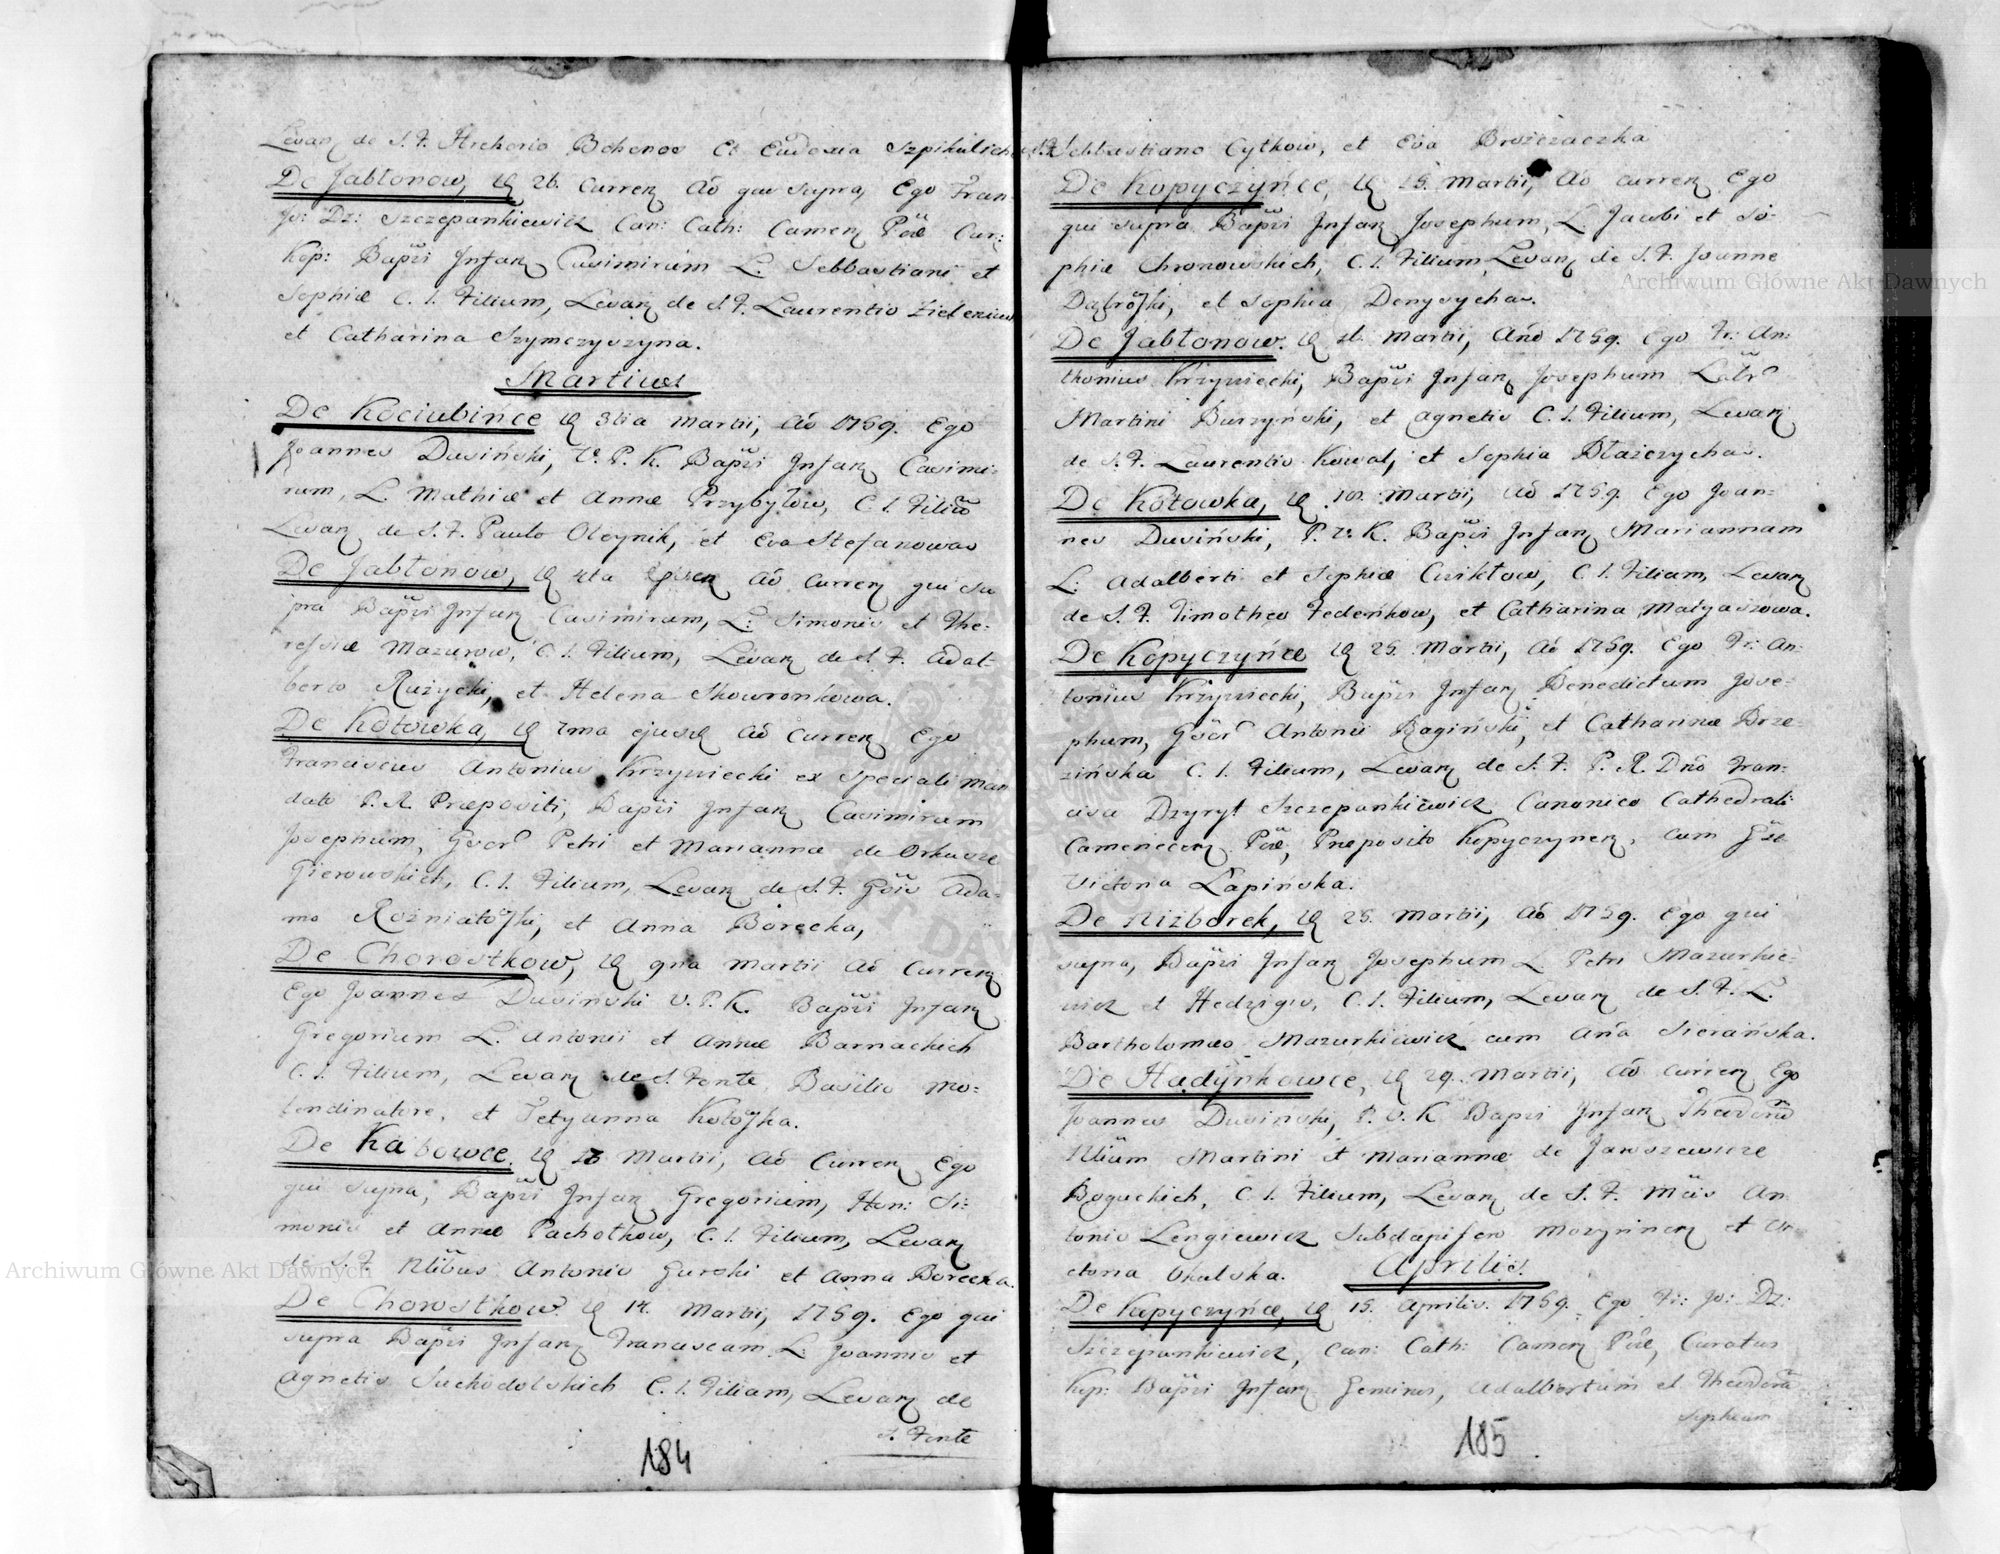 Levanz de S. F. Hrehorio Bohonos Et Eudoxia Szpikulicho
De Jabłonow, 26. Currenz Ao quo supra, Ego Fran:
Jo: Dz: Szczepankiewicz Can: Cath: Camenz Pöłł Cur:
Kop: Bapzi Infanz Casimirum L. Sebbastiani et
Sophiæ C. l. Filium, Levanz de S. F. Laurentio Zieleniu
et Catharina Szymczyszyna.
Martius
De Kociubince 3tia Martii, Ao 1759. Ego
Joannes Dusiński, V. P. K. Bapzi Infanz Casimi:
rum, L. Mathiæ et Annæ Przybyłów, C. l. Filiū
Levanz de S. F. Paulo Oleynik, et Eva Stefanowa
De Jabłonow, 4ta Ao Currenz qui su
pra Bapzi Infanz Casimirum, L: Simonis et The:
ressiæ Mazurow, C. l. Filium, Levanz de S. F. Adal:
berto Rużycki, et Helena Skowronkowa.
De Kotowka, 7ma ejusd Ao Currenz Ego
Franciscus Antonius Krzywiecki ex Speciali Man
dato P. R. Præpositi, Bapzi Infanz Casimirum
Josephum, Gsor Petri et Mariannæ de Orkusze
Gierowskich, C. l. Filium, Levanz de S. F. Gsis Ada:
mo Rozniatoski, et Anna Borecka,
De Chorostkow, 9na Martii Ao Currenz
Ego Joannes Dusinski V. P. K. Bapzi Infanz
Gregorium L. Antonii et Annæ Barnackich
C. l. Filium, Levanz de S. Fonte Basilio Mo:
lendinatore, et Tetyanna Kotoska.
De Kabowce. 13 Martii, Ao Currenz Ego
qui supra, Bapzi Infanz Gregorium, Hon: Si:
monis et Annæ Pachotkow, C. l. Filium, Levanz
de S. F. Nlibus Antonio Gurski et Anna Borecka.
De Chorostkow. 14. Martii, 1759. Ego qui
supra Bapzi Infanz Franciscam L. Joannis et
Agnetis Suchodolskich C. l. Filiam, Levanz de
S. Fonte
184
Sebbastiano Cytkow, et Eva Browczaczka
De Kopyczyńce, 15. Martii, Ao Currenz Ego
qui supra Bapzi Infanz Josephum, L. Jacobi et So:
phiæ Chronowskich, C. l. Filium Levanz de S. F. Joanne
Dąbroski, et Sophia Denysycha.
De Jabłonow. 16. Martii, Ano 1759. Ego Fr: An:
thonius Krzywiecki, Bapzi Infanz Josephum
Martini Burzyński, et Agnetis C. l. Filium, Levanz
de S. F. Laurentio Kowal, et Sophia Błażczycha.
De Kotowka, 18. Martii, Ao 1759. Ego Joan:
nes Dusiński, P. V. K. Bapzi Infanz Mariannam
L: Adalberti et Sophiæ Cwiktow, C. l. Filiam, Levanz
de S. F. Timotheo Fedenkow, et Catharina Małyaszowa.
De Kopyczyńce 25. Martii, Ao 1759. Ego Fr: An:
tonius Krzywiecki, Bapzi Infanz Benedictum Jose:
phum, Gsor Antonii Bagiński, et Catharinæ Brze:
zińska C. l. Filium, Levanz de S. F. P. R. Dno Fran:
cisco Dzyryt Szczepankiewicz Canonico Cathedrali
Camenecenz Pöłł, Præposito Kopyczynenz, cum Gse
Victoria Łapińska.
De Nizborek, 25. Martii, Ao 1759. Ego qui
supra, Bapzi Infanz Josephum L. Petri Mazurkie:
wicz et Hedvigis, C. l. Filium, Levanz de S. F. L.
Bartholomæo Mazurkiewicz cum Aña Sierańska.
De Hadynkowce, 29. Martii, Ao Currenz Ego
Joannes Dusinski, P. V. K Bapzi Infanz Theodorū
Nlium Martini et Mariannæ de Jaroszewicze
Boguckich, C. l. Filium, Levanz de S. F. An:
tonio Lengiewicz Subdapifero Mozyrinenz et Vi
ctoria Okulska.
Aprilis.
De Kopyczyńce, 15. Aprilis. 1759. Ego Fr: Jo: Dz:
Szczepankiewicz, Can: Cath: Camenz Pöłł, Curatus
Kop: Bapzi Infanz Geminos, Adalbertum et Theodorū
Sophiam
185
Archiwum Główne Akt Dawnych
Archiwum Główne Akt Dawnych